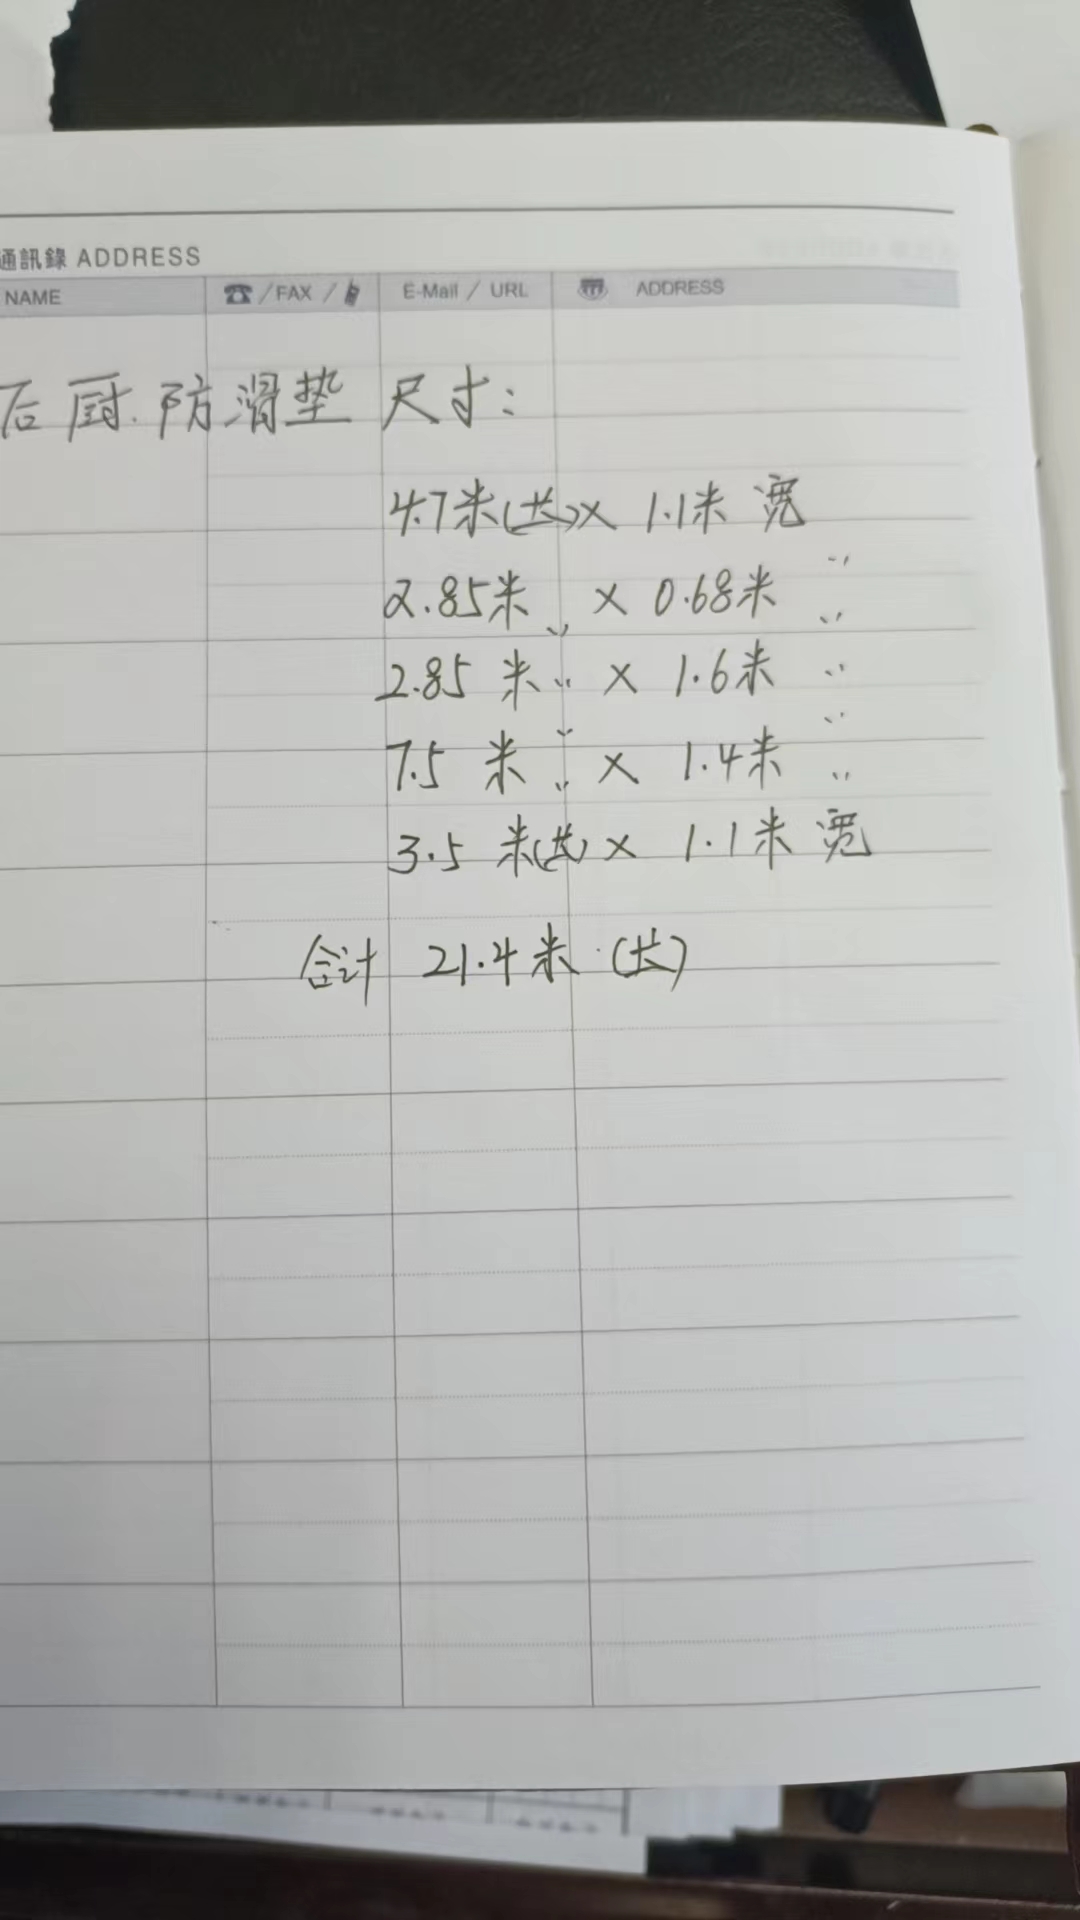 通訊錄 ADDRESS
NAME /FAX / E-Mail / URL ADDRESS
后厨.防滑垫 尺寸:
4.7米(长)× 1.1米 宽
2.85米 〃 × 0.68米 〃
2.85 米 〃 × 1.6米 〃
7.5 米 〃 × 1.4米 〃
3.5 米(长) × 1.1米 宽
合计 21.4米 (长)